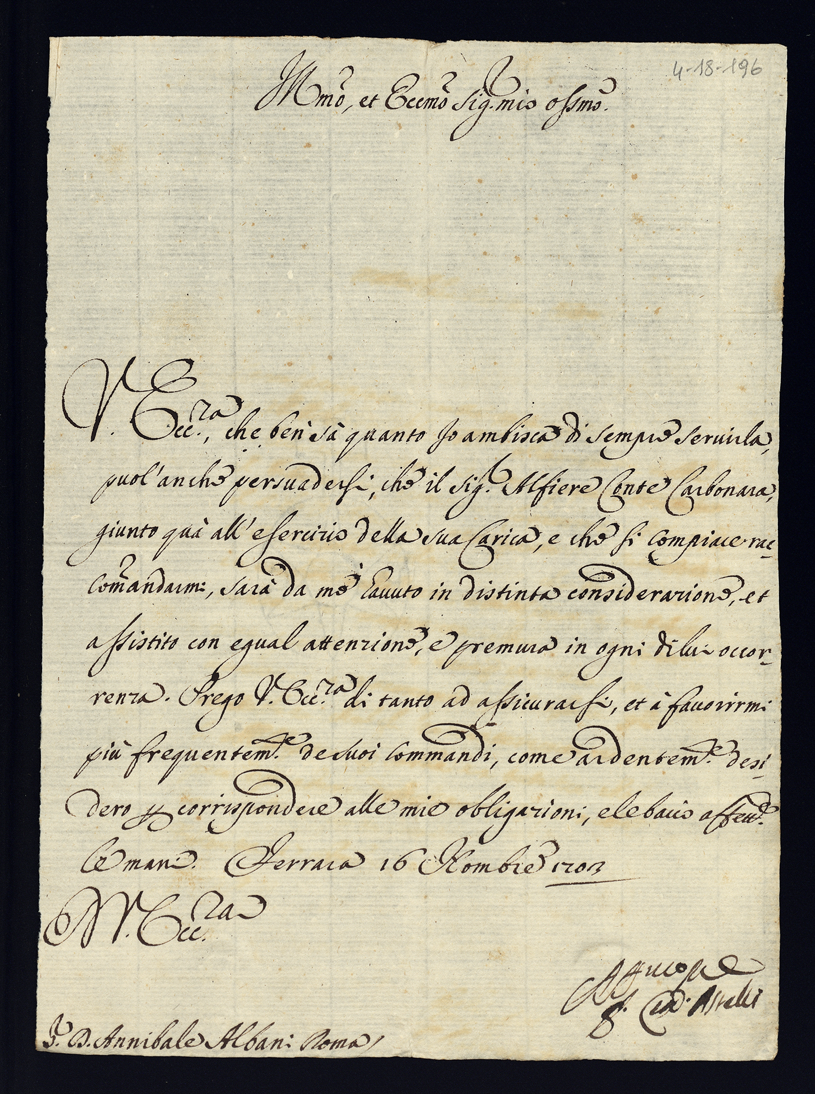 4-18-196
Illmo, et Eccmo Sig.r mio ossmo.
V. Ecc.za, che ben sà quanto Io ambisca di sempre servirla,
puol'anche persuadersi, che il Sig.r Alfiere Conte Carbonara,
giunto quà all'esercizio della sua Carica, e che si compiace rac-
comandarmi, sarà da me havuto in distinta considerazione, et
assistito con egual attenzione, e premura in ogni di lui occor-
renza. Prego V. Ecc.za di tanto ad assicurarsi, et à favorirmi
più frequentem.te de suoi commandi, come ardentem.te desi-
dero corrispondere alle mie obligazioni, e le bacio
le mani. Ferrara 16 Nombre 1703
D V. Ecc.za
S. Card. Astalli
D. Annibale Albani Roma